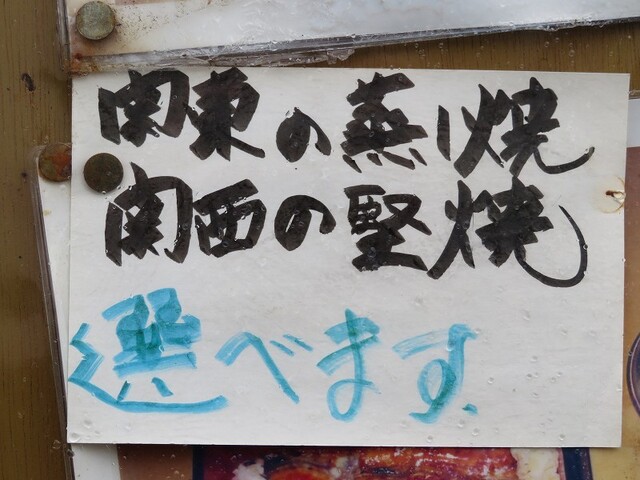 関東の蒸し焼
関西の堅焼
選べます.